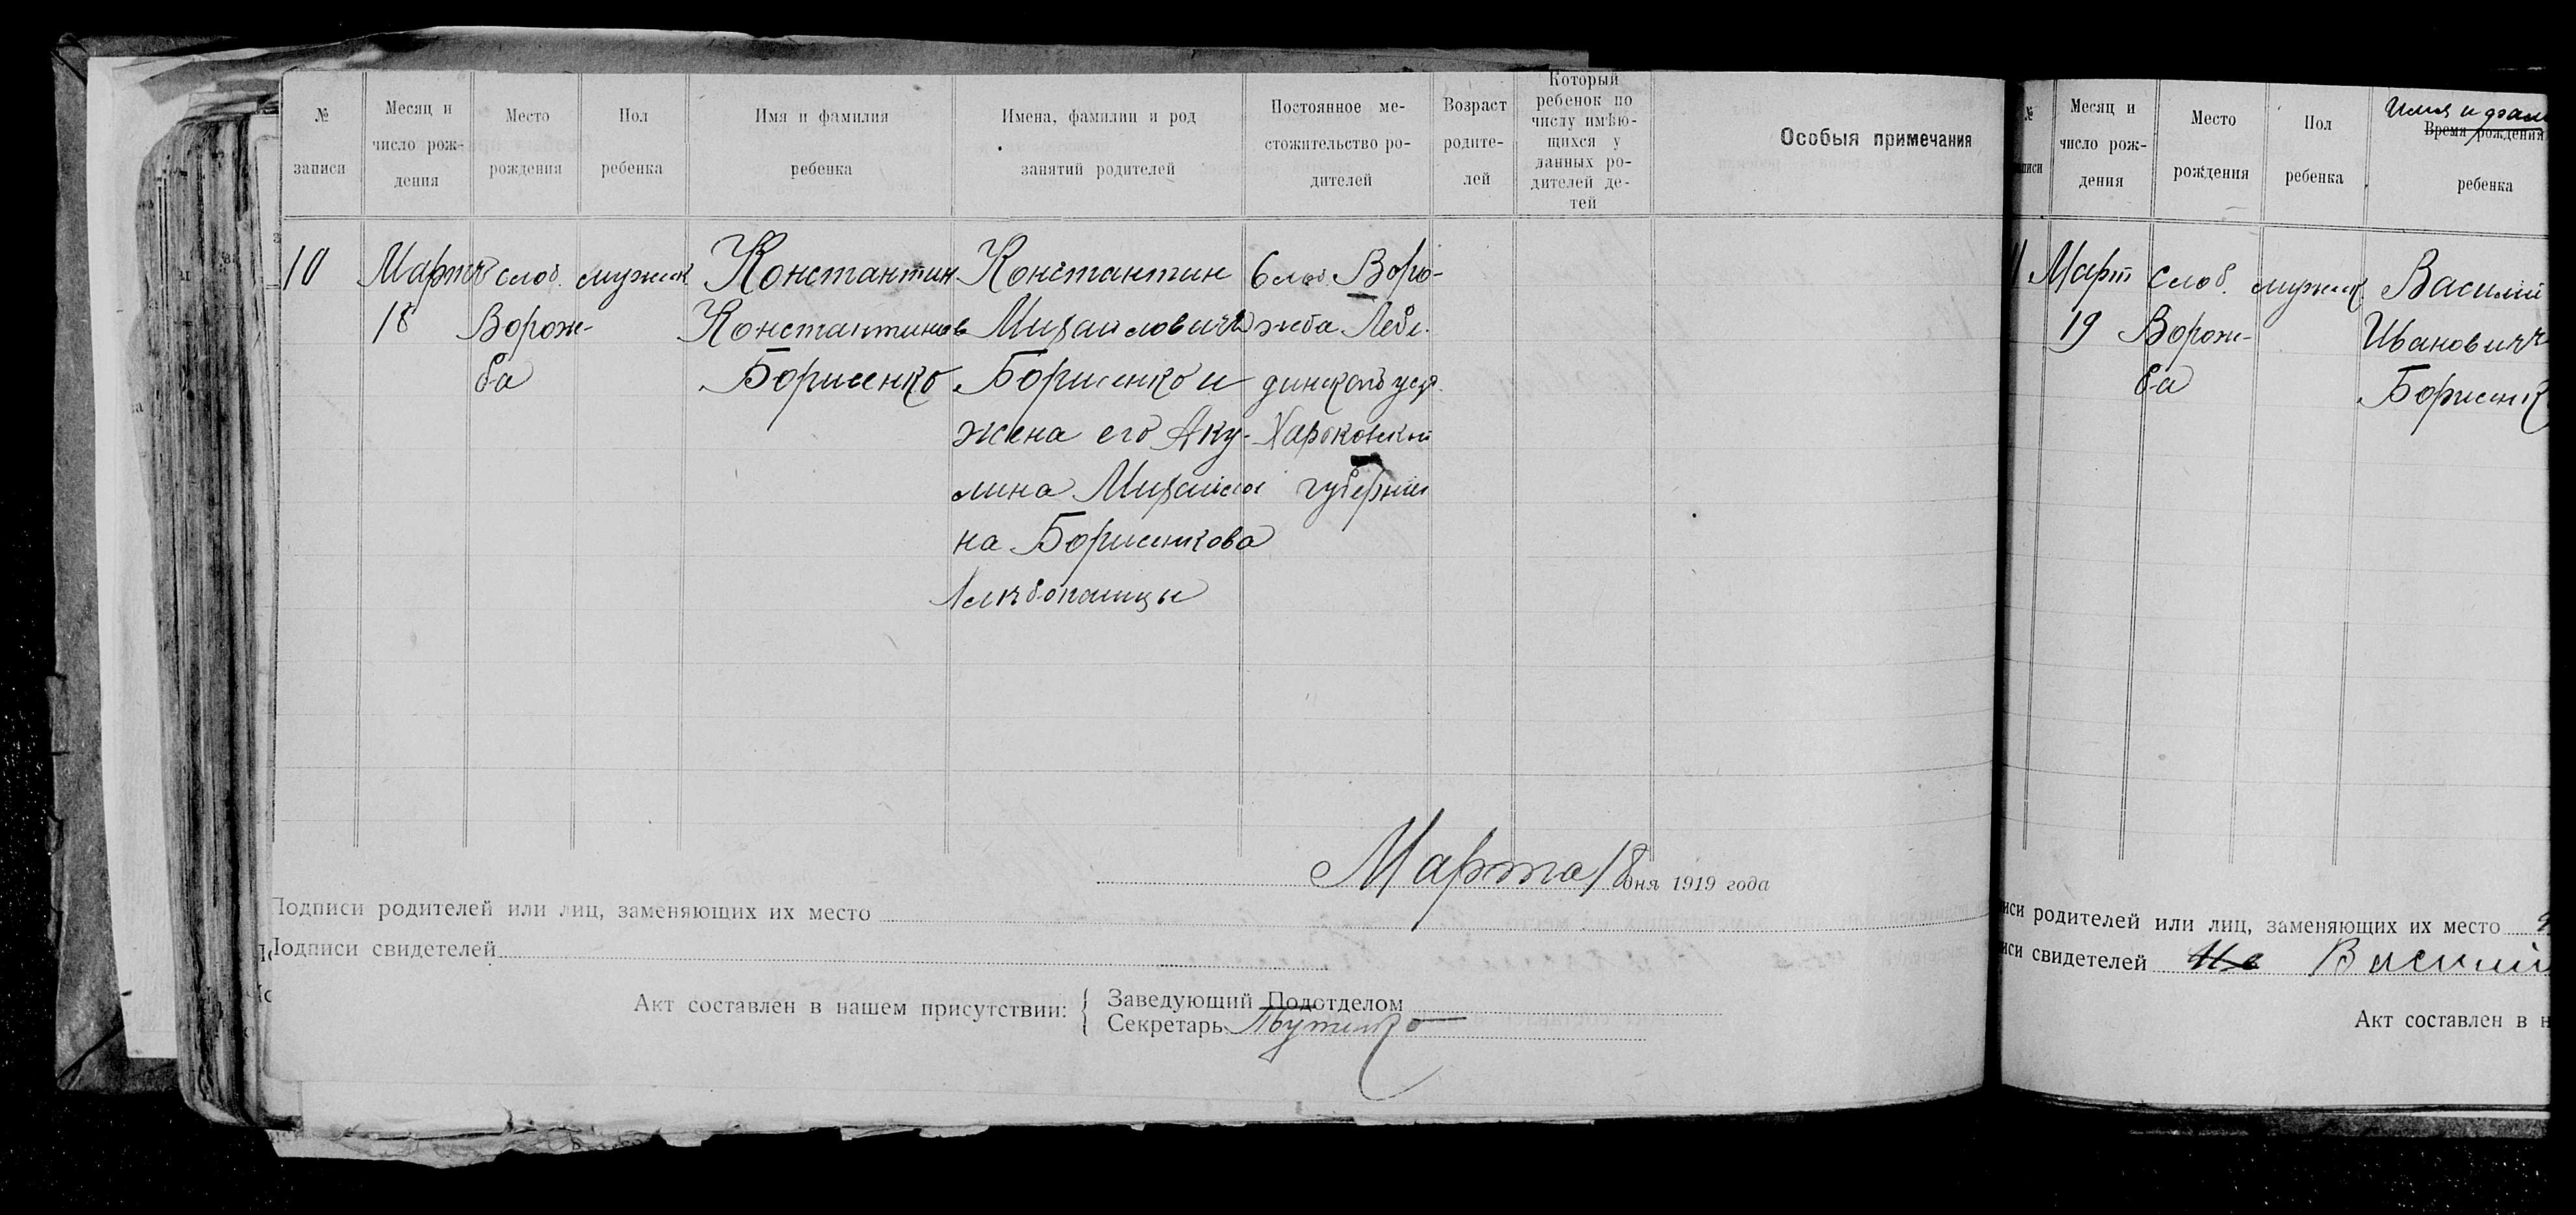 № записи
Месяц и число рождения
Место рождения
Пол ребенка
Имя и фамилия ребенка
Имена, фамилии и род занятий родителей
Постоянное местожительство родителей
Возраст родителей
Который ребенок по числу имѣющихся у данных родителей детей
Особыя примечания
10
Март
18
слоб.
Ворож-
ба
мужск
Константин
Константинов
Борисенко
Константин
Михайлович
Борисенко и
жена его Аку-
лина Михайлов
на Борисенкова
слоб. Воро-
жба Лебе
динскаго уезд.
Харьковской
губернии
Марта 18 дня 1919 года
Подписи родителей или лиц, заменяющих их место
Подписи свидетелей
Акт составлен в нашем присутствии:
Заведующий Подотделом
Секретарь
№
записи
Месяц и число рождения
Место рождения
Пол ребенка
Имя и фами
Время рождения
ребенка
11
Март
19
слоб.
Ворож-
ба
мужск
Василий
Иванович
Борисенк
иси родителей или лиц, заменяющих их место
иси свидетелей
Василий
Акт составлен в н